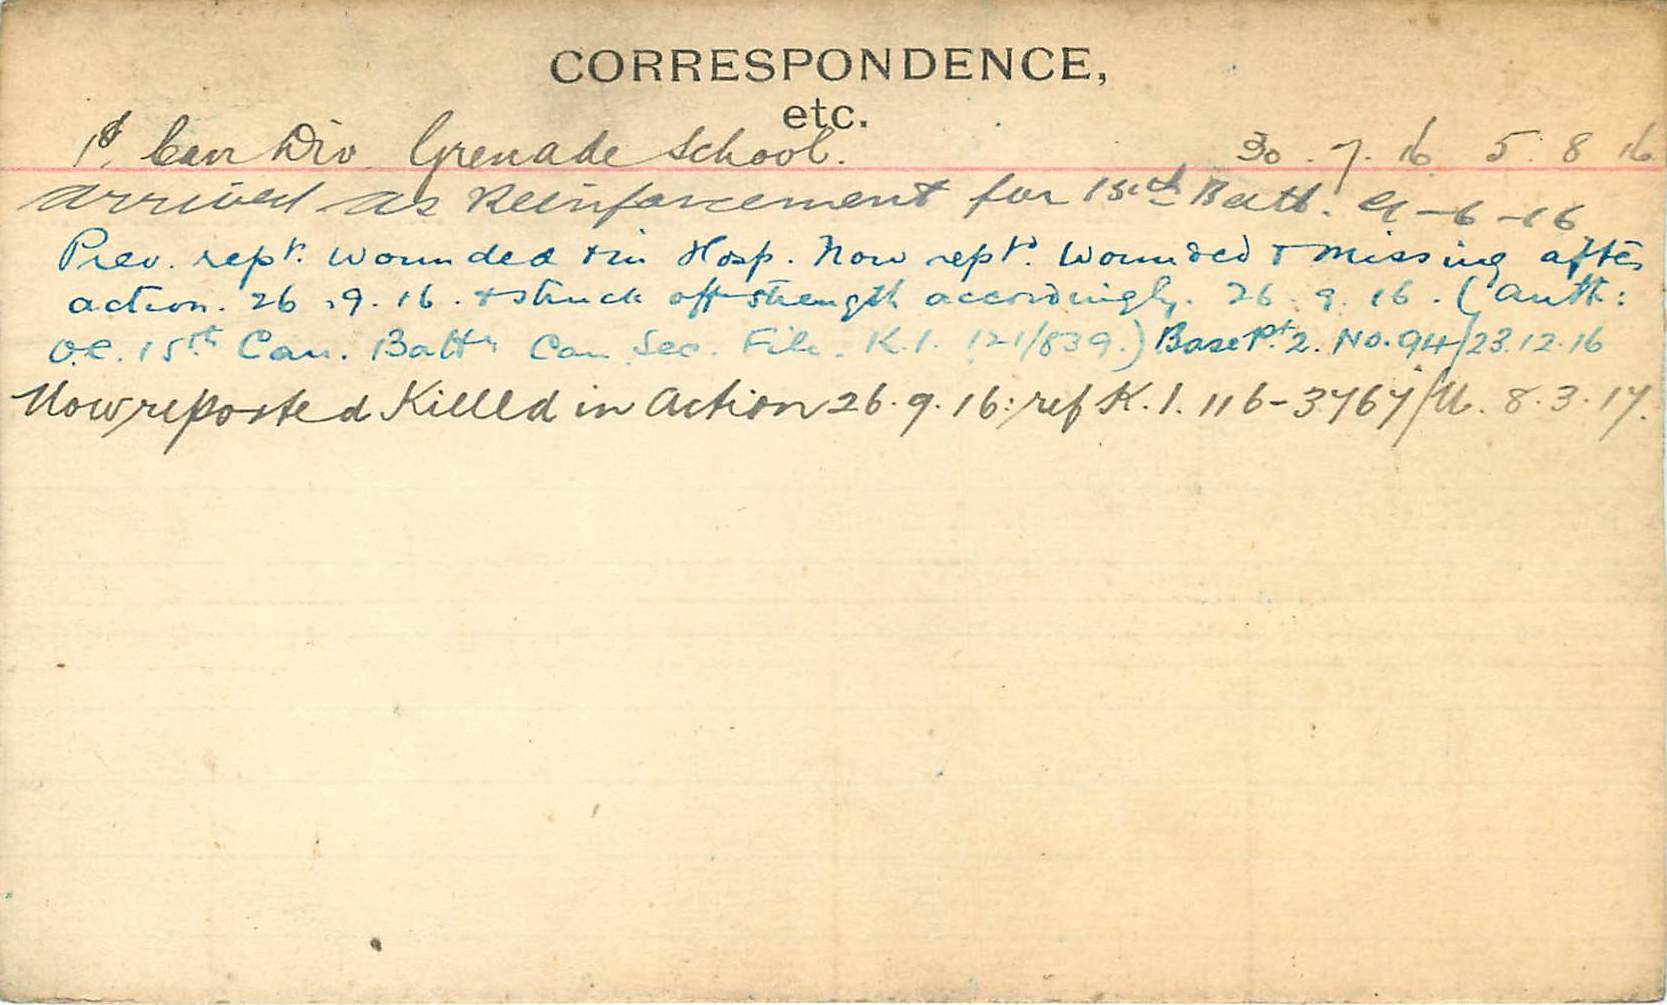 CORRESPONDENCE,
etc.
1st Can Div Grenade School. 30.7.16 5.8.16
arrived as Reinforcement for 15th Batt. 9-6-16
Prev. rept. wounded & in Hosp. Now rept. wounded & missing after
action. 26.9.16. & struck off strength accordingly. 26.9.16. (Auth:
O.C. 15th Can. Battn Can Sec. File. K.1. 121/839.) Base Pt. 2. No. 94/23.12.16
Now reported Killed in Action 26.9.16: ref K.1. 116-3767/ 8.3.17.